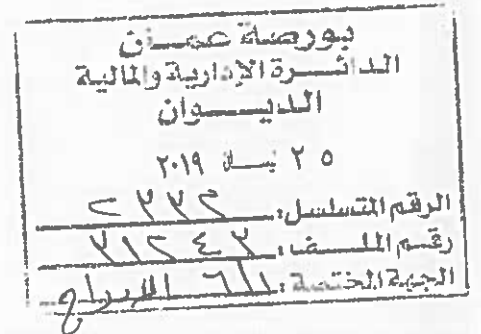 بورصة عمان
الدائرة الإدارية والمالية
الديوان
٢٥ نيسان ٢٠١٩
الرقم المتسلسل: ٢٣٣٢
رقم الملف: ٣١٢٤٣
الجهة المختصة: الإدراج